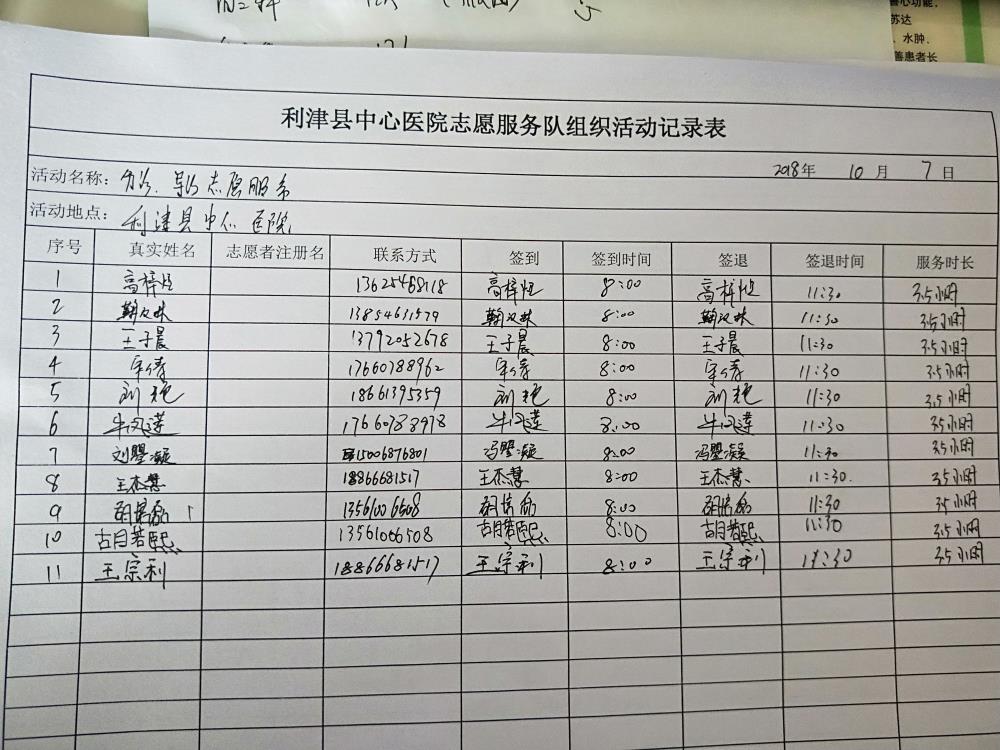 苏达
水肿.
善患者长
利津县中心医院志愿服务队组织活动记录表
2018年 10月 7日
活动名称: 分诊、导诊志愿服务
活动地点: 利津县中心医院
序号 真实姓名 志愿者注册名 联系方式 签到 签到时间 签退 签退时间 服务时长
1 高梓恒 13625468118 高梓恒 8:00 高梓恒 11:30 3.5小时
2 13854611579 8:00 11:30 3.5小时
3 王子晨 13792052678 王子晨 8:00 王子晨 11:30 3.5小时
4 宋倩 17660788962 宋倩 8:00 宋倩 11:30 3.5小时
5 刘艳 18661395359 刘艳 8:00 刘艳 11:30 3.5小时
6 牛凤莲 17660788978 牛凤莲 8:00 牛凤莲 11:30 3.5小时
7 刘曌凝 15006876801 冯曌凝 8:00 冯曌凝 11:30 3.5小时
8 王杰慧 18866681517 王杰慧 8:00 王杰慧 11:30. 3.5小时
9 13561006508 8:00 11:30 3.5小时
10 胡若熙 13561006508 胡若熙 8:00 胡若熙 11:30 3.5小时
11 王宗利 18866681517 王宗利 8:00 王宗利 11:30 3.5小时